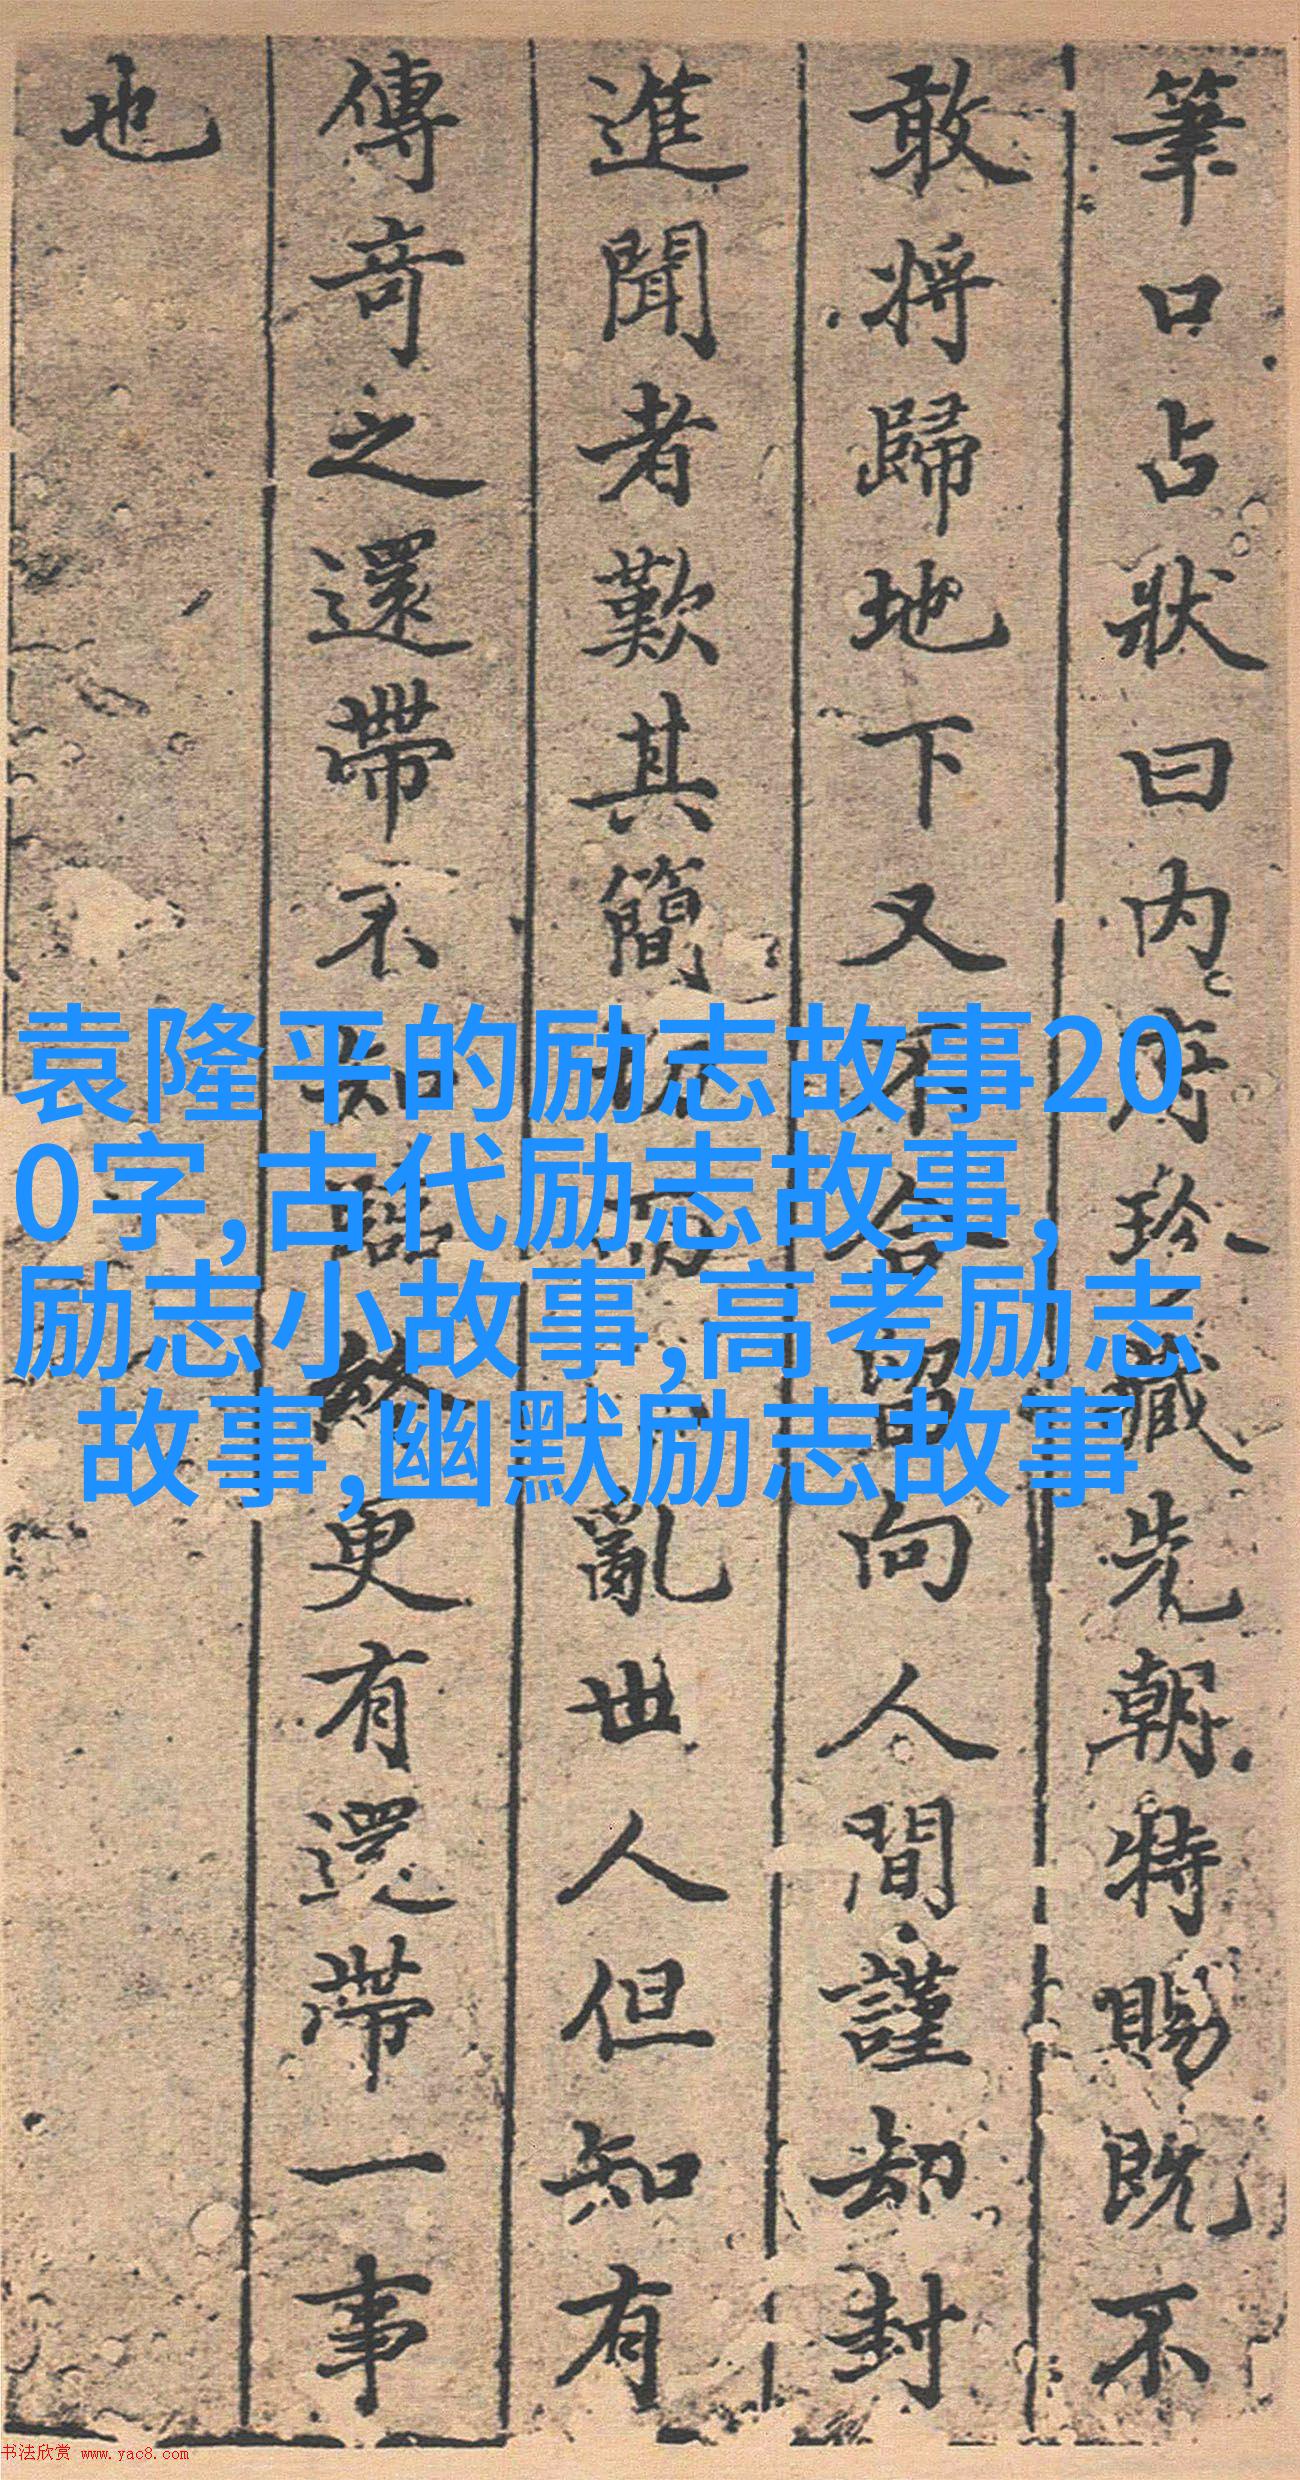 筆口占狀曰内府珍藏先朝特賜既不
敢将歸地下又不合留向人間謹却封
進聞者歎其簡切而亂世人但知有
傳奇之還帶不知臨終更有還帶一事
也
袁隆平的励志故事20
0字,古代励志故事,
励志小故事,高考励志
故事,幽默励志故事
书法欣赏 www.yac8.com